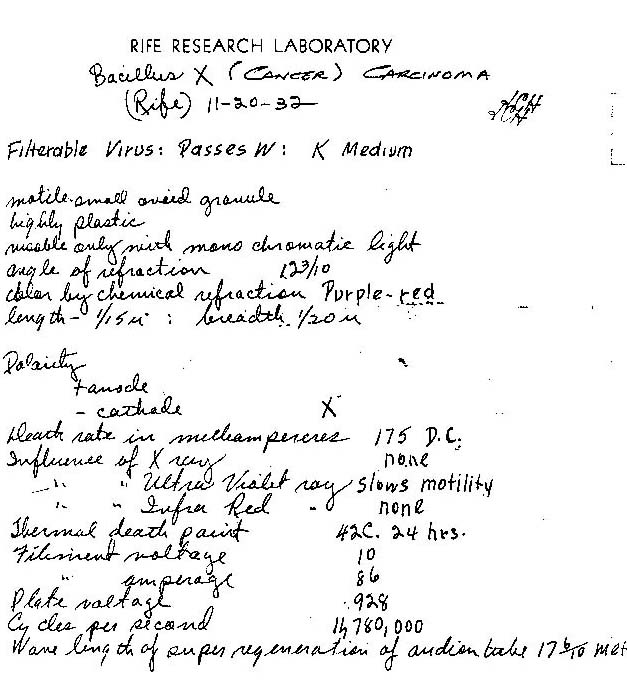 RIFE RESEARCH LABORATORY
Bacillus X (CANCER) CARCINOMA
(Rife) 11-20-32
Filterable Virus: Passes W: K Medium
motile small ovoid granule
highly plastic
visable only with mono chromatic light
angle of refraction 12 3/10
color by chemical refraction Purple-red
length- 1/15 u : breadth 1/20 u
Polarity
+ anode
- cathode X
Death rate in milliamperes 175 D.C.
Influence of X ray none
" " Ultra Violet ray slows motility
" " Infra Red " none
Thermal death point 42C. 24 hrs.
Filiment voltage 10
" amperage 86
Plate voltage 928
Cycles per second 11,780,000
Wave length of super regeneration of audion tube 17 6/10 met